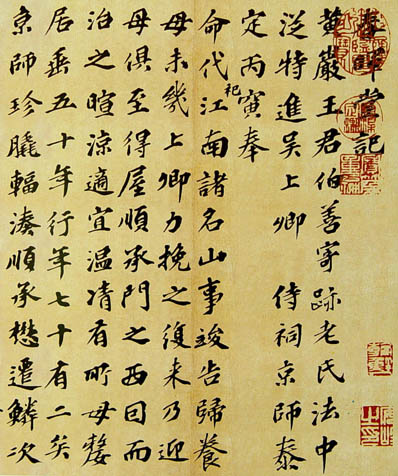 春暉堂記
黃巖王君伯善寄跡老氏法中
從特進吳上卿 侍祠京師泰
定丙寅奉
命代祀江南諸名山事竣告歸養
母未幾上卿力挽之復来乃迎
母俱至得屋順承門之西因而
治之暄涼適宜温凊有所母嫠
居垂五十年行年七十有二矣
京師珍輻湊順承懋遷鱗次